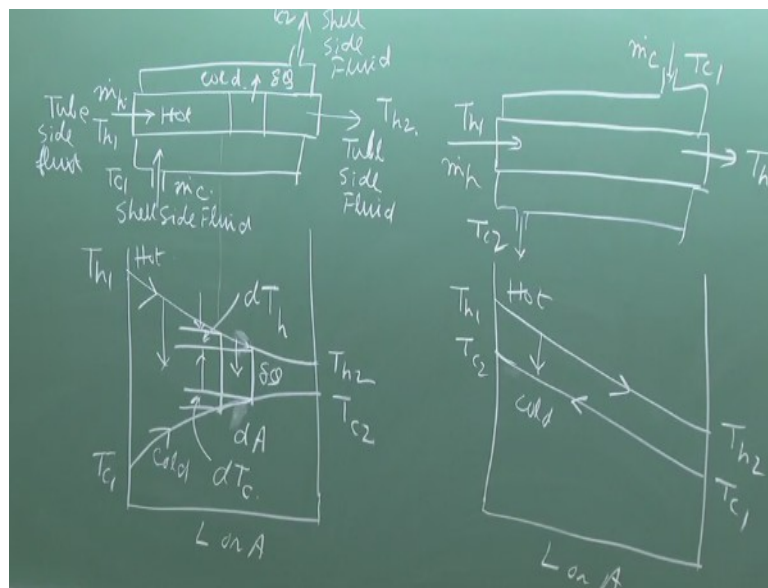 Shell
side
Fluid
cold. δQ
ṁh
Tube
side
fluid
Th1
Hot
Th2.
Tube
side
Fluid
Tc1
ṁc.
Shell Side Fluid
Th1
Hot
dTh
Th2
δQ
Tc2
dA
Tc1
Cold
dTc.
L or A
ṁc
Tc1
Th1
ṁh
Tc2
Th1
Hot
Tc2
Cold
Th2
Tc1
L or A